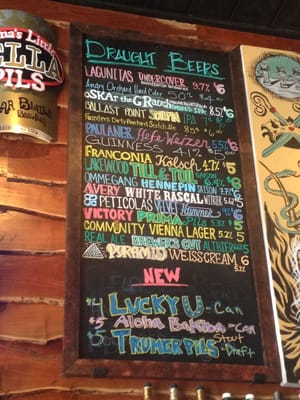 ma's Little
ELLA
PILS
DRAUGHT BEERS
LAGUNITAS UNDERCOVER 9.7% $6
Angry Orchard Hard Cider 5.0%
OSKAR
BALLAST POINT SCULPIN IPA
Founders Dirty Bastard Scotch Ale 8.5% $6
PAULANER Hefe Weizen 5.5%
GUINNESS
FRANCONIA Kölsch 4.7% $5
LAKEWOOD TILL & TOIL SAISON
OMMEGANG HENNEPIN SAISON
AVERY WHITE RASCAL WITBIER $6
PETICOLAS VELVET
VICTORY PRIMA Pils 5.3% $5
COMMUNITY VIENNA LAGER $5
REAL ALE BREWER'S CUT ALTBIER $5
PYRAMID WEISS CREAM $6
5.2%
NEW
$4 LUCKY U -Can
$5 Aloha -Can
Stout
$5 TRUMER PILS -Draft